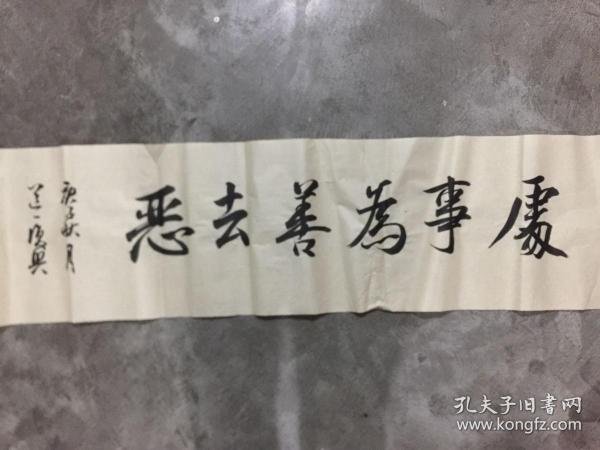 處事為善去惡
庚子秋月
道一後興
孔夫子旧书网
www.kongfz.com